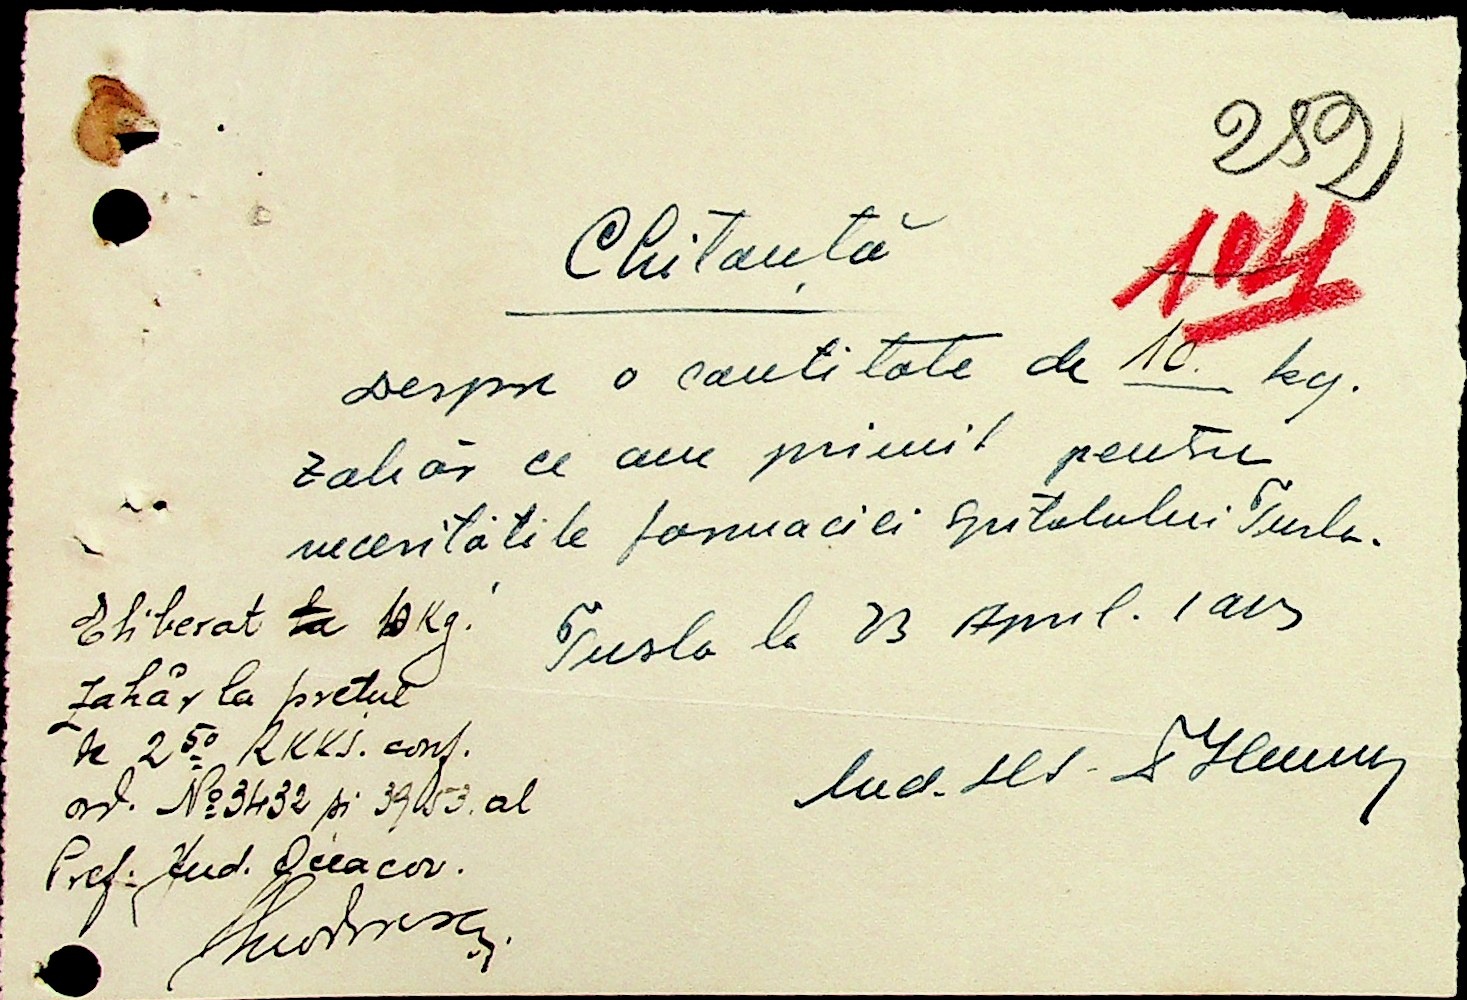 252
104
Chitanță
Despre o cantitate de 10. kg.
zahăr ce am primit pentru
necesitățile farmaciei Spitalului Tusla.
Tusla la 23 April. 1943
Med.
Eliberat la 10 Kg.
Zahăr la prețul
de 2 50 RKKS. conf.
ord. No 3432 și 3953. al
Pref. Jud. Oceacov.